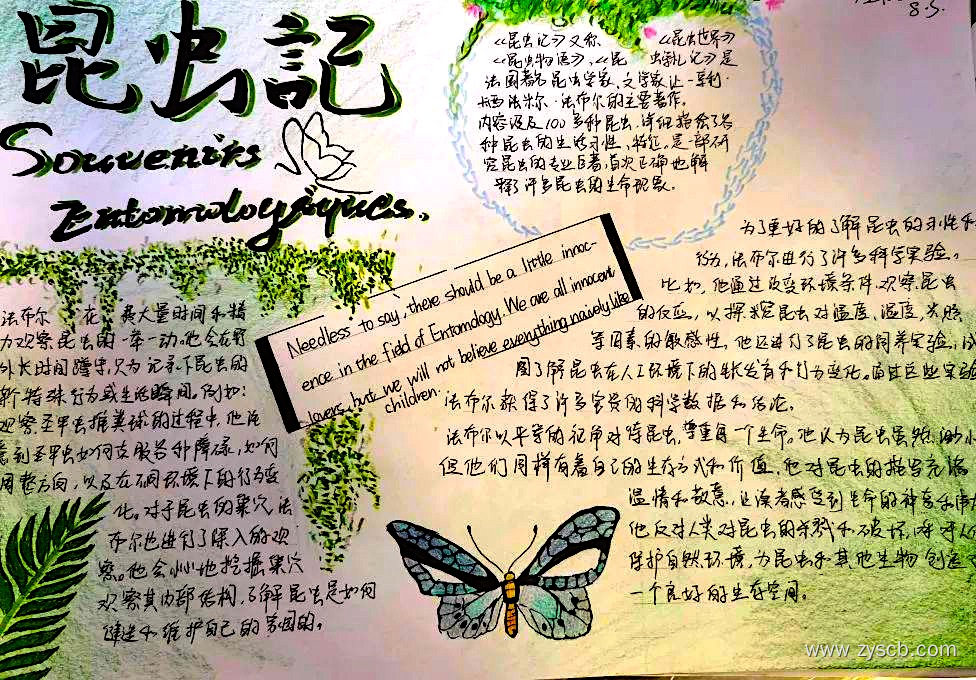 昆虫記
Souvenirs
Entomologiques.
8.5.
《昆虫记》又称 《昆虫世界》
《昆虫物语》,《昆 虫札记》是
法国著名昆虫学家、文学家让-亨利·
卡西米尔·法布尔的主要著作。
内容涉及100多种昆虫,详细描绘了各
种昆虫的生活习性、特征,是一部研
究昆虫的专业巨著,首次正确地解
释了许多昆虫的生命现象。
Needless to say, there should be a little innoc-
ence in the field of Entomology. We are all innocent
lovers, but we will not believe everything naively like
children.
法布尔 花 费大量时间和精
力观察昆虫的一举一动。他会在野
外长时间蹲守,只为记录下昆虫的
新特殊行为或生活瞬间。例如:
观察圣甲虫推粪球的过程中,他注
意到圣甲虫如何克服各种障碍,如何
调整方向,以及在不同环境下的行为变
化。对于昆虫的巢穴,法
布尔也进行了深入的观
察。他会小心地挖掘巢穴
观察其内部结构,了解昆虫是如何
建造和维护自己的家园的。
为了更好的了解昆虫的习性和
行为,法布尔进行了许多科学实验。
比如,他通过改变环境条件,观察昆虫
的反应,以探究昆虫对温度、湿度、光照
等因素的敏感性。他还进行了昆虫的饲养实验,以
了解昆虫在人工环境下的生长发育和行为变化。通过这些实验
法布尔获得了许多宝贵的科学数据和结论。
法布尔以平等的视角对待昆虫,尊重每一个生命。他认为昆虫虽然渺小
但他们同样有着自己的生存方式和价值,他对昆虫的描写充满
温情和敬意,让读者感受到生命的神奇和伟大
他反对人类对昆虫的杀戮和破坏,呼吁人
保护自然环境,为昆虫和其他生物创造
一个良好的生存空间。
www.zyscb.com